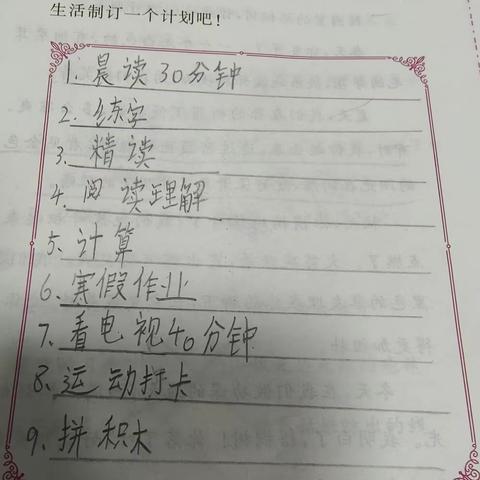 生活制订一个计划吧！
1. 晨读30分钟
2. 练字
3. 精读
4. 阅读理解
5. 计算
6. 寒假作业
7. 看电视40分钟
8. 运动打卡
9. 拼积木